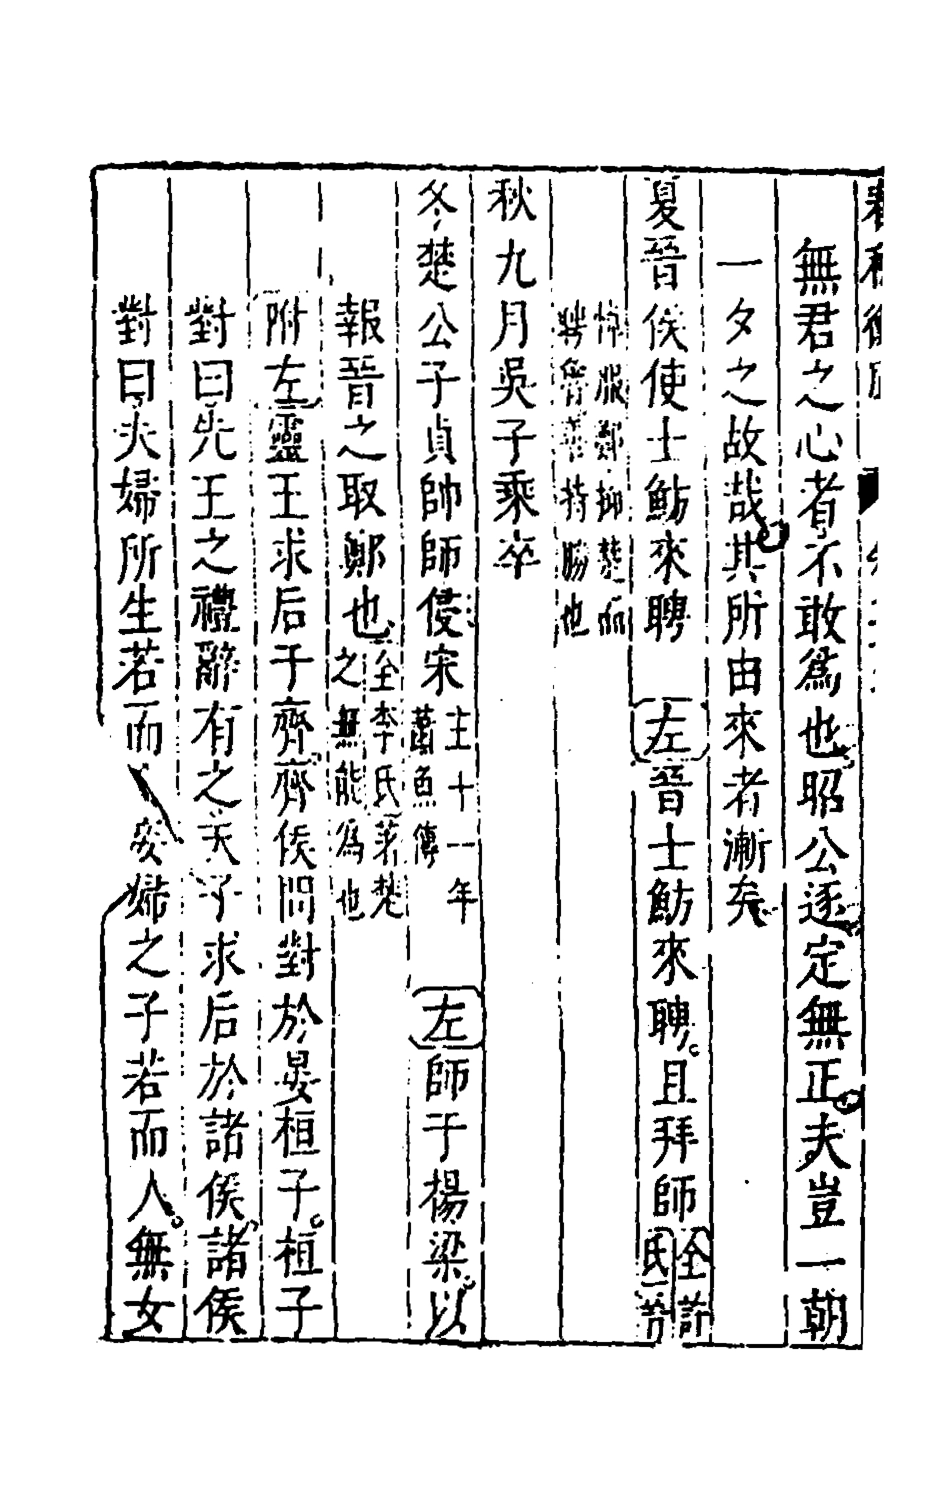 無君之心者不敢爲也昭公逐定無正夫豈一朝
一夕之故哉其所由來者漸矣
夏晉侯使士魴來聘 左晉士魴來聘且拜師 仝許氏曰
悼服鄭抑楚而
聘魯善持勝也
秋九月吳子乘卒
冬楚公子貞帥師侵宋 主十一年蕭魚傳 左師于楊梁以
報晉之取鄭也 仝李氏著楚之無能爲也
附左靈王求后于齊齊侯問對於晏桓子桓子
對曰先王之禮辭有之天子求后於諸侯諸侯
對曰夫婦所生若而 妾婦之子若而人無女